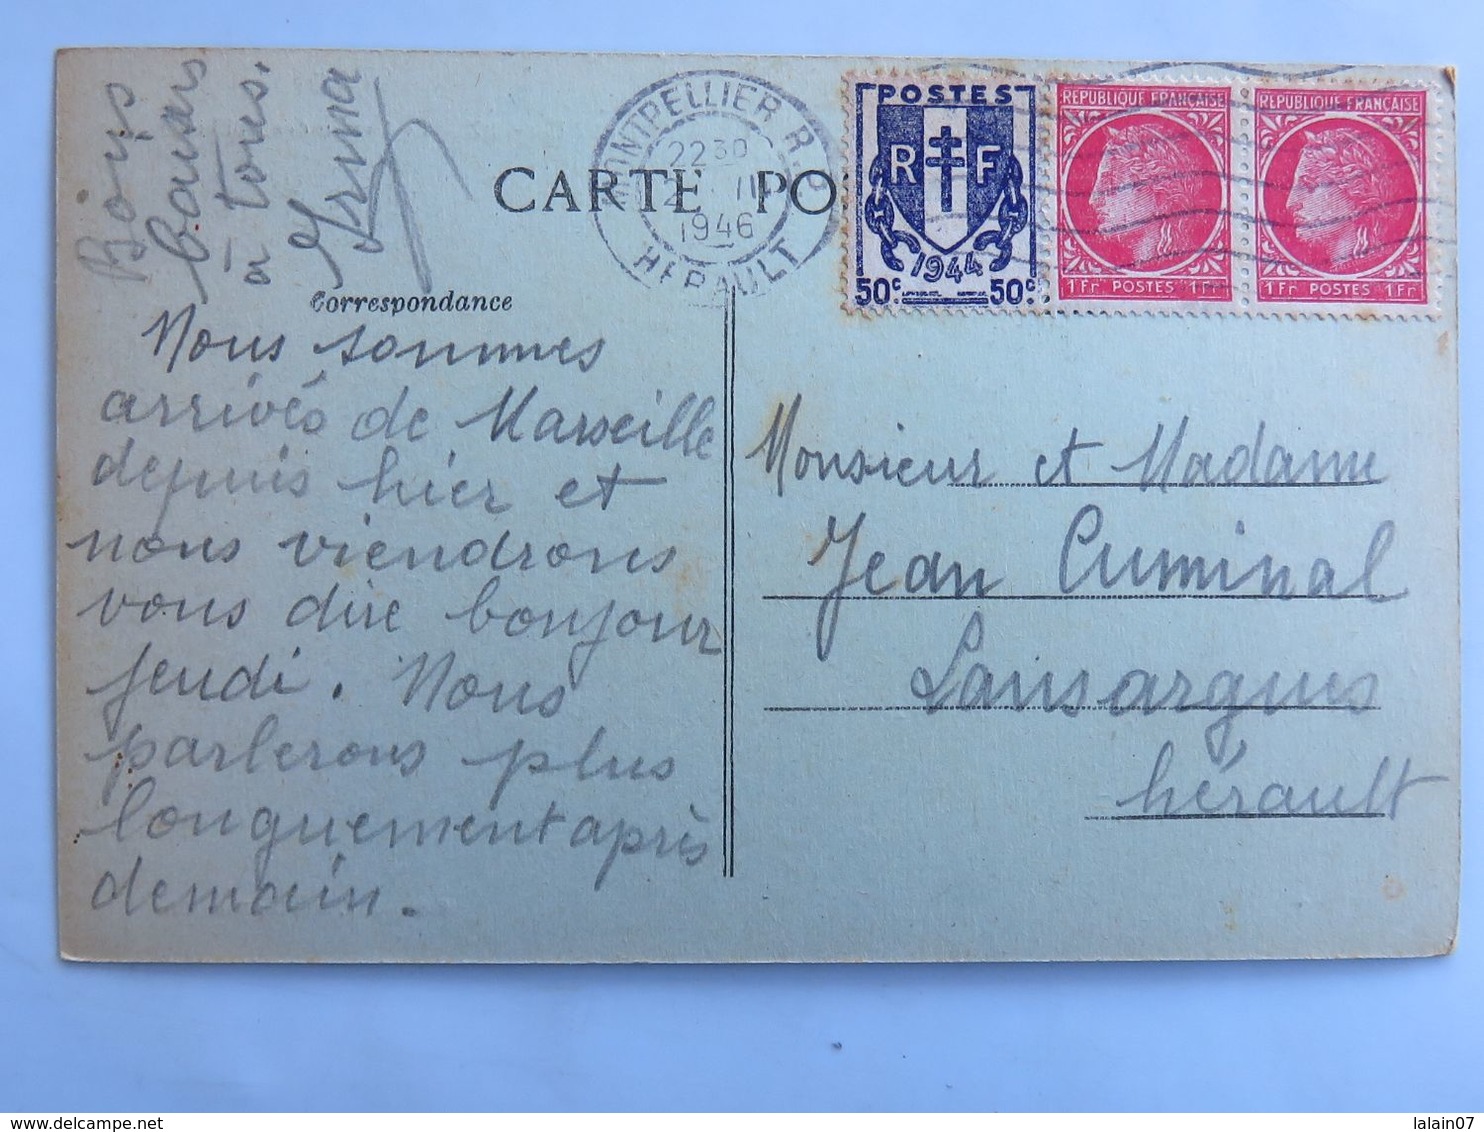 Bons
baisers
à tous.
Irma
MONTPELLIER R.P.
22 30
1946
HERAULT
CARTE PO
POSTES
R F
1944
50c 50c
REPUBLIQUE FRANÇAISE
1Fr POSTES 1Fr
REPUBLIQUE FRANÇAISE
1Fr POSTES 1Fr
Correspondance
Nous sommes
arrivés de Marseille
depuis hier et
nous viendrons
vous dire bonjour
jeudi. Nous
parlerons plus
longuement après
demain.
Monsieur et Madame
Jean Cuminal
Lansargues
hérault
lalain07